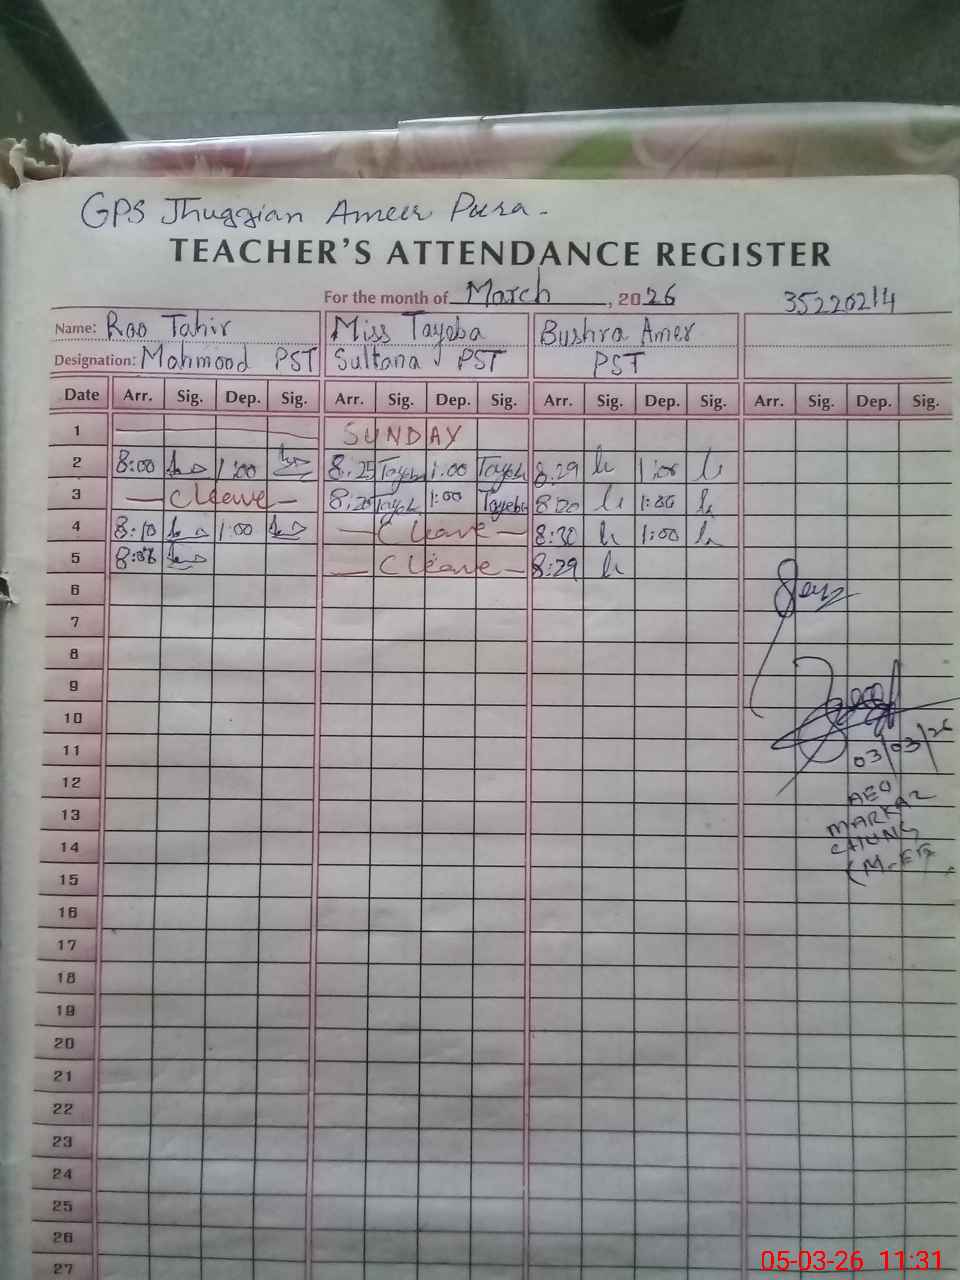 GPS Jhuggian Ameer Pura.
TEACHER'S ATTENDANCE REGISTER
For the month of March, 2026 35220214
Name: Rao Tahir Miss Tayeba Bushra Amer
Designation: Mahmood PST Sultana PST PST
Date Arr. Sig. Dep. Sig. Arr. Sig. Dep. Sig. Arr. Sig. Dep. Sig. Arr. Sig. Dep. Sig.
1 SUNDAY
2 8:00 1:00 8:25 Tayeba 1:00 Tayeba 8:29 1:00
3 — C leave — 8:20 Tayeba 1:00 Tayeba 1:00
4 8:10 1:00 — C leave — 8:30 1:00
5 — C leave — 8:29
6
7
8
9
10
11
03/03/26
12
AEO
13
MARKAZ
14
CHUNG
15
16
17
18
19
20
21
22
23
24
25
26
27
05-03-26 11:31